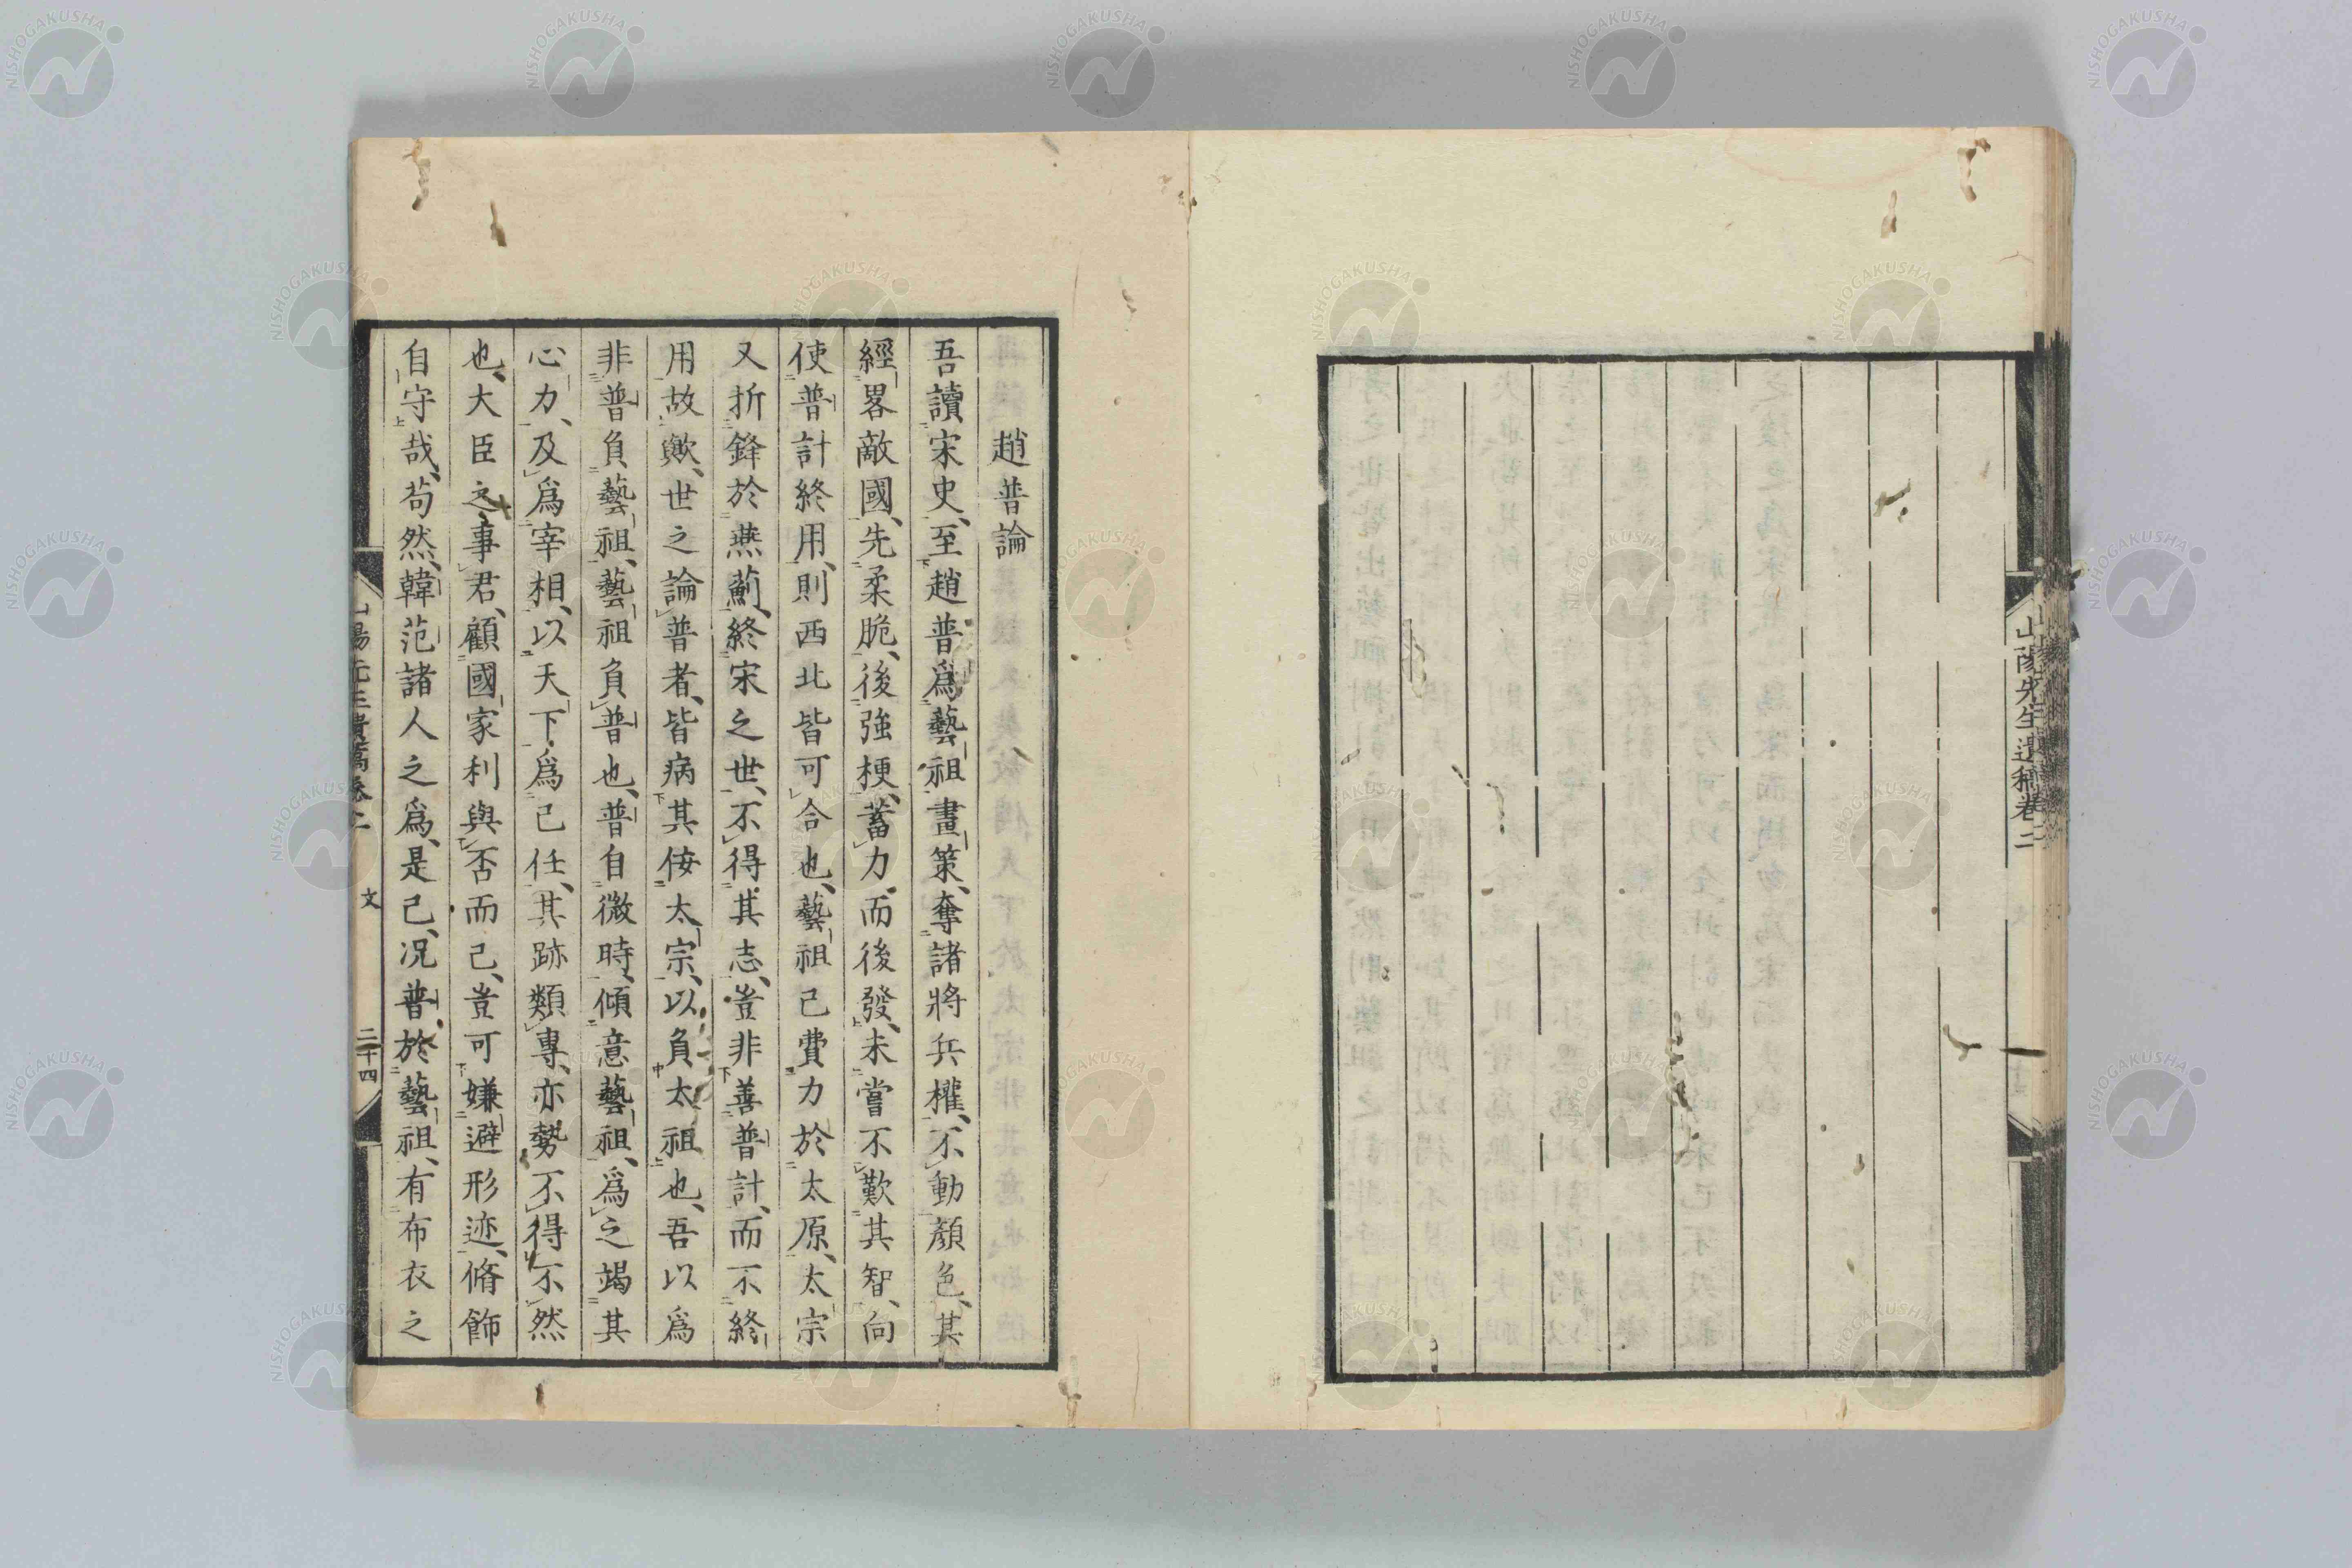 山陽先生遺稿卷二
趙普論
吾讀宋史、至趙普爲藝祖畫策、奪諸將兵權、不動顏色、其
經畧敵國、先柔脆、後強梗、蓄力而後發、未嘗不歎其智、向
使普計終用、則西北皆可合也、藝祖已費力於太原、太宗
又折鋒於燕薊、終宋之世、不得其志、豈非善普計、而不終
用故歟、世之論普者、皆病其侫太宗、以負太祖也、吾以爲
非普負藝祖、藝祖負普也、普自微時、傾意藝祖、爲之竭其
心力、及爲宰相、以天下爲己任、其跡類專、亦勢不得不然
也、大臣之事君、顧國家利與否而已、豈可嫌避形迹、脩飾
自守哉、苟然、韓范諸人之爲、是已、况普於藝祖、有布衣之
文
二十四
NISHOGAKUSHA